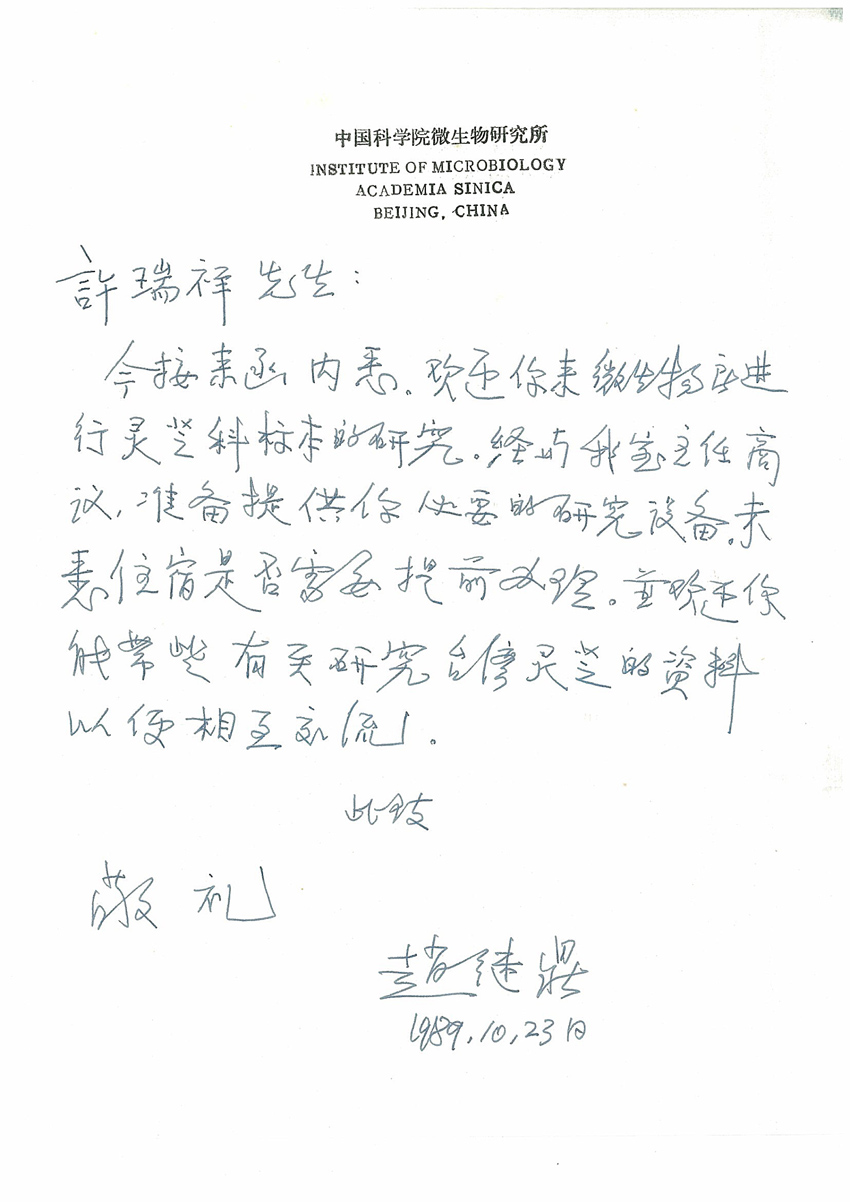 中国科学院微生物研究所
INSTITUTE OF MICROBIOLOGY
ACADEMIA SINICA
BEIJING, CHINA
許瑞祥先生：
今接来函内悉。欢迎你来微生物所进
行灵芝科标本的研究。经与我室主任商
议，准备提供你必要的研究设备。未
悉住宿是否需要提前办理。並欢迎你
能带些有关研究台湾灵芝的資料
以便相互交流。
此致
敬礼
趙继鼎
1989.10.23日